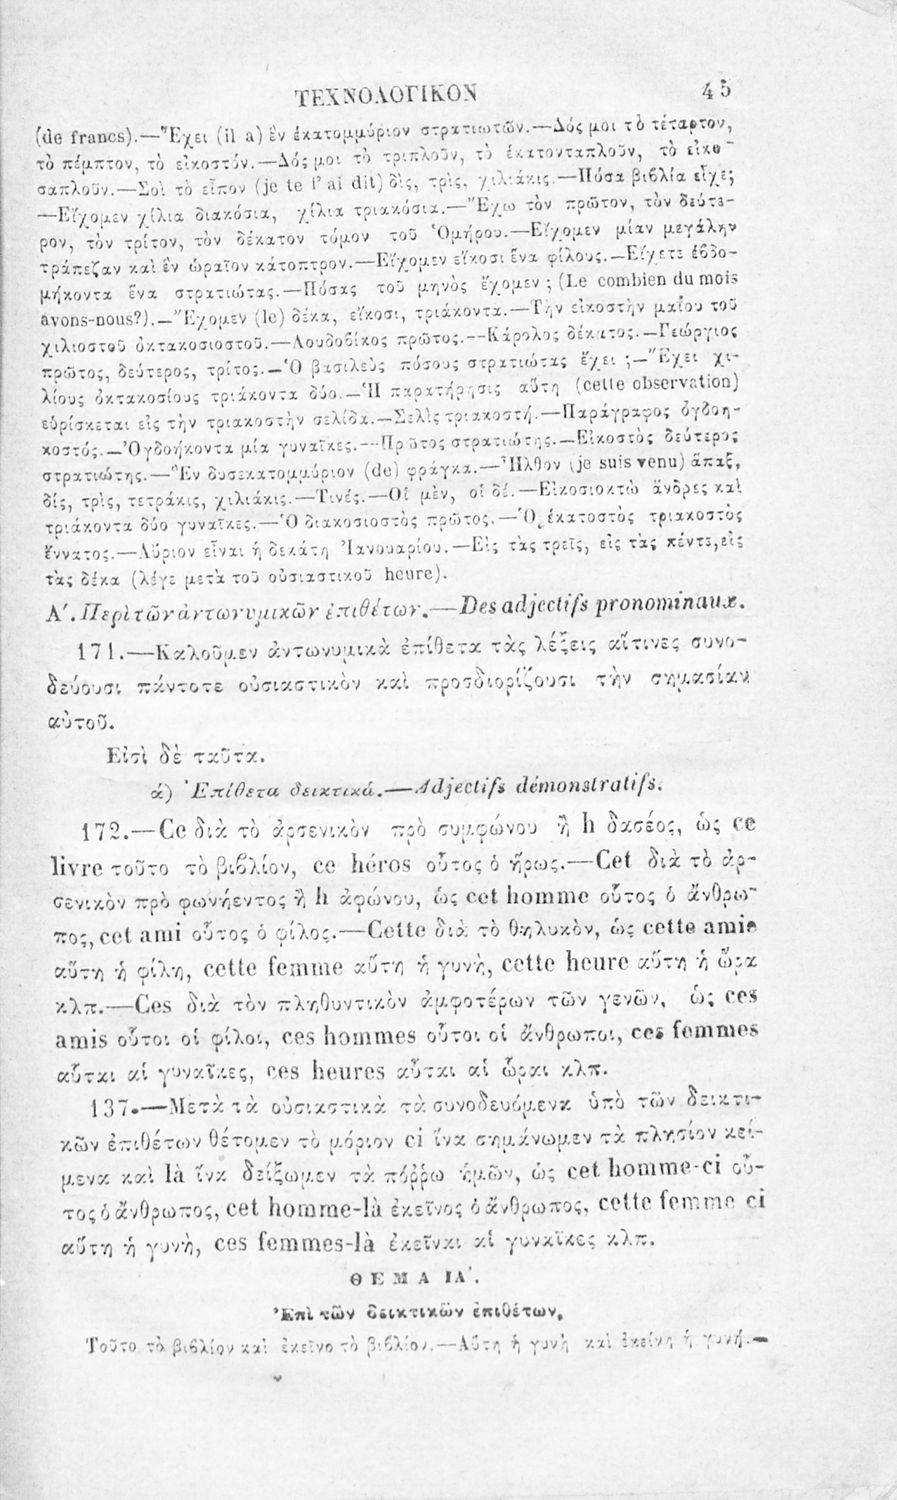 ΤΕΧΝΟΛΟΓΙΚΟΝ 45
(de francs).—Ἔχει (il a) ἓν ἑκατομμύριον στρατιωτῶν.—Δός μοι τὸ τέταρτον,
τὸ πέμπτον, τὸ εἰκοστόν.—Δός μοι τὸ τριπλοῦν, τὸ ἑκατονταπλοῦν, τὸ εἰκο-
σαπλοῦν.—Σοὶ τὸ εἶπον (je te l' ai dit) δίς, τρίς, χιλιάκις.—Πόσα βιβλία εἶχε;
—Εἴχομεν χίλια διακόσια, χίλια τριακόσια.—Ἔχω τὸν πρῶτον, τὸν δεύτε-
ρον, τὸν τρίτον, τὸν δέκατον τόμον τοῦ Ὁμήρου.—Εἴχομεν μίαν μεγάλην
τράπεζαν καὶ ἓν ὡραῖον κάτοπτρον.—Εἴχομεν εἴκοσι ἕνα φίλους.—Εἴχετε ἑβδο-
μήκοντα ἕνα στρατιώτας.—Πόσας τοῦ μηνὸς ἔχομεν; (Le combien du mois
avons-nous?).—Ἔχομεν (le) δέκα, εἴκοσι, τριάκοντα.—Τὴν εἰκοστὴν μαΐου τοῦ
χιλιοστοῦ ὀκτακοσιοστοῦ.—Λουδοβίκος πρῶτος.—Κάρολος δέκατος.—Γεώργιος
πρῶτος, δεύτερος, τρίτος.—Ὁ βασιλεὺς πόσους στρατιώτας ἔχει;—Ἔχει χι-
λίους ὀκτακοσίους τριάκοντα δύο.—Ἡ παρατήρησις αὕτη (cette observation)
εὑρίσκεται εἰς τὴν τριακοστὴν σελίδα.—Σελὶς τριακοστή.—Παράγραφος ὀγδοη-
κοστός.—Ὀγδοήκοντα μία γυναῖκες.—Πρῶτος στρατιώτης.—Εἰκοστὸς δεύτερος
στρατιώτης.—Ἓν δυσεκατομμύριον (de) φράγκα.—Ἦλθον (je suis venu) ἅπαξ,
δίς, τρίς, τετράκις, χιλιάκις.—Τινές.—Οἱ μὲν, οἱ δέ.—Εἰκοσιοκτὼ ἄνδρες καὶ
τριάκοντα δύο γυναῖκες.—Ὁ διακοσιοστὸς πρῶτος.—Ὁ ἑκατοστὸς τριακοστὸς
ἔννατος.—Αὔριον εἶναι ἡ δεκάτη Ἰανουαρίου.—Εἰς τὰς τρεῖς, εἰς τὰς πέντε, εἰς
τὰς δέκα (λέγε μετὰ τοῦ οὐσιαστικοῦ heure).
Α'. Περὶ τῶν ἀντωνυμικῶν ἐπιθέτων.—Des adjectifs pronominaux.
171.—Καλοῦμεν ἀντωνυμικὰ ἐπίθετα τὰς λέξεις αἵτινες συνο-
δεύουσι πάντοτε οὐσιαστικὸν καὶ προσδιορίζουσι τὴν σημασίαν
αὐτοῦ.
Εἰσὶ δὲ ταῦτα.
ά) Ἐπίθετα δεικτικά.—Adjectifs démonstratifs.
172.—Ce διὰ τὸ ἀρσενικὸν πρὸ συμφώνου ἢ h δασέος, ὡς ce
livre τοῦτο τὸ βιβλίον, ce héros οὗτος ὁ ἥρως.—Cet διὰ τὸ ἀρ-
σενικὸν πρὸ φωνήεντος ἢ h ἀφώνου, ὡς cet homme οὗτος ὁ ἄνθρω-
πος, cet ami οὗτος ὁ φίλος.—Cette διὰ τὸ θηλυκὸν, ὡς cette amie
αὕτη ἡ φίλη, cette femme αὕτη ἡ γυνὴ, cette heure αὕτη ἡ ὥρα
κλπ.—Ces διὰ τὸν πληθυντικὸν ἀμφοτέρων τῶν γενῶν, ὡς ces
amis οὗτοι οἱ φίλοι, ces hommes οὗτοι οἱ ἄνθρωποι, ces femmes
αὗται αἱ γυναῖκες, ces heures αὗται αἱ ὧραι κλπ.
137.—Μετὰ τὰ οὐσιαστικὰ τὰ συνοδευόμενα ὑπὸ τῶν δεικτι-
κῶν ἐπιθέτων θέτομεν τὸ μόριον ci ἵνα σημάνωμεν τὰ πλησίον κεί-
μενα καὶ là ἵνα δείξωμεν τὰ πόῤῥω ἡμῶν, ὡς cet homme-ci οὗ-
τος ὁ ἄνθρωπος, cet homme-là ἐκεῖνος ὁ ἄνθρωπος, cette femme ci
αὕτη ἡ γυνὴ, ces femmes-là ἐκεῖναι αἱ γυναῖκες κλπ.
ΘΕΜΑ ΙΑ'.
Ἐπὶ τῶν δεικτικῶν ἐπιθέτων.
Τοῦτο τὸ βιβλίον καὶ ἐκεῖνο τὸ βιβλίον.—Αὕτη ἡ γυνὴ καὶ ἐκείνη ἡ γυνή.—